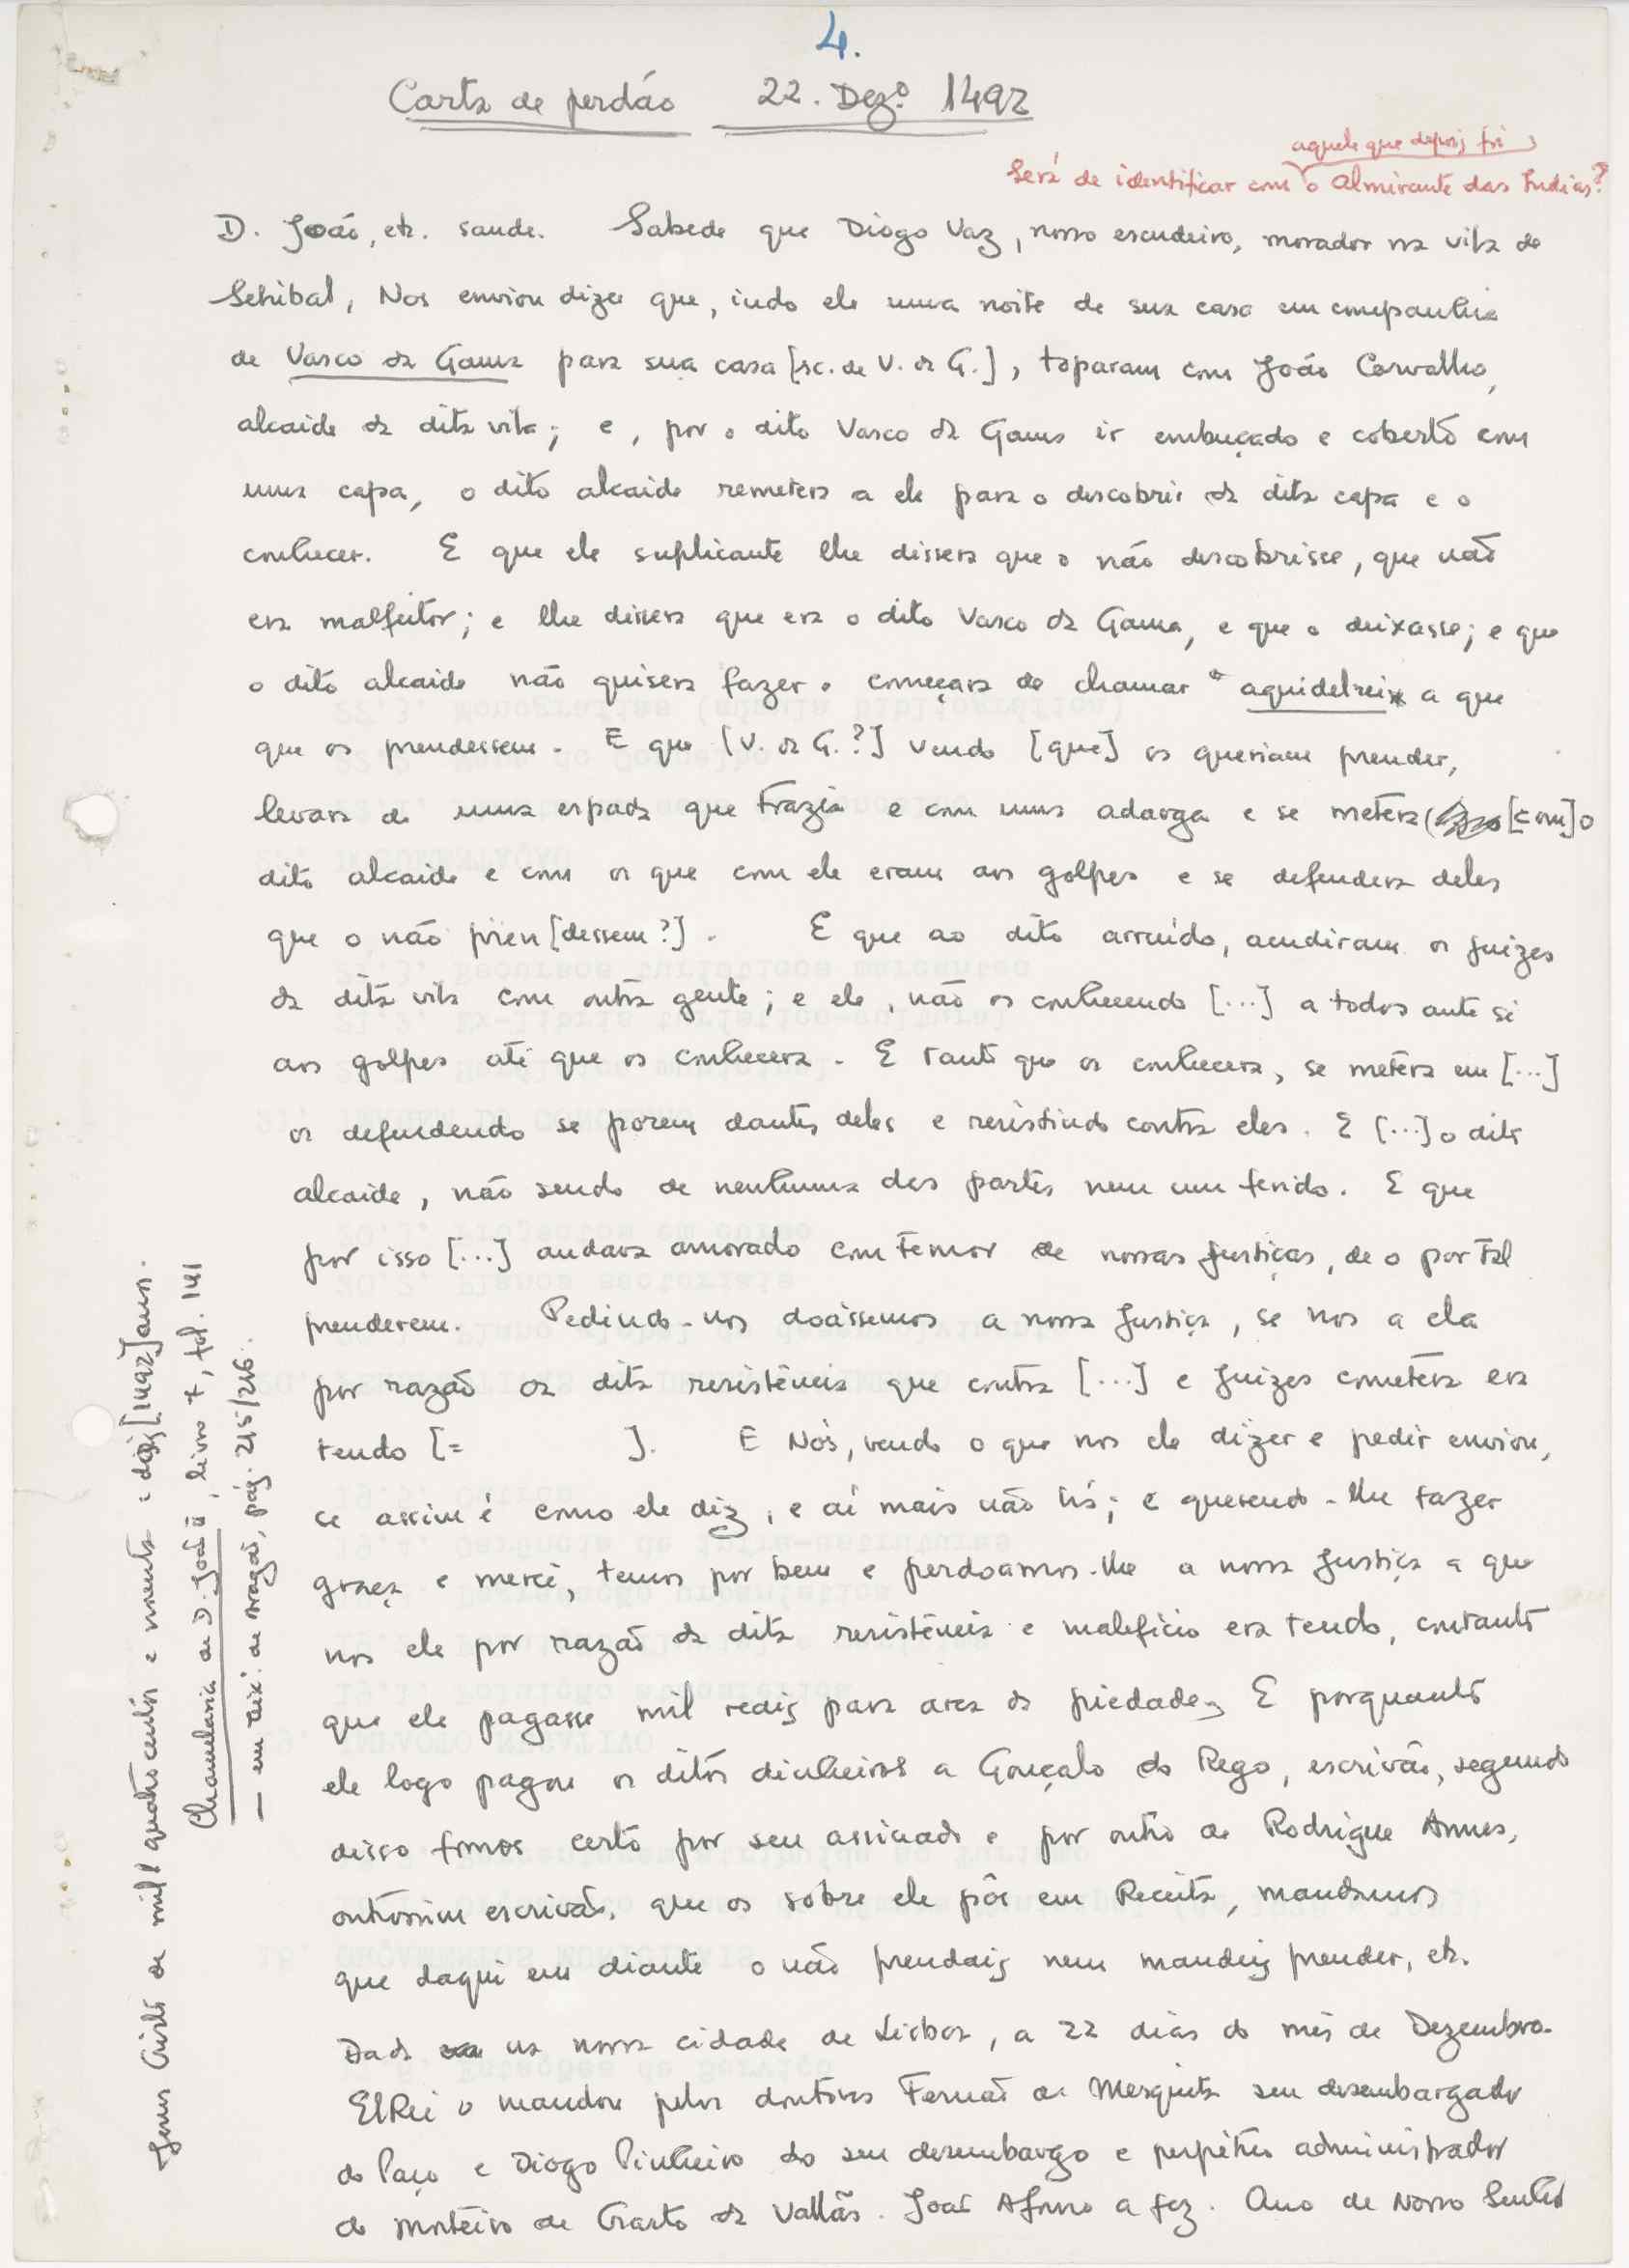 4.
Carta de perdão 22. Dez.º 1492
aquele que depois foi
Será de identificar com o Almirante das Indias?
D. João, etc. saude. Sabede que Diogo Vaz, nosso escudeiro, morador na vila de
Setúbal, Nos enviou dizer que, indo ele uma noite de sua casa em companhia
de Vasco da Gama para sua casa [sc. de V. da G.], toparam com João Carvalho,
alcaide da dita vila; e, por o dito Vasco da Gama ir embuçado e coberto com
uma capa, o dito alcaide remetera a ele para o descobrir da dita capa e o
conhecer. E que ele suplicante lhe dissera que o não descobrisse, que não
era malfeitor; e lhe dissera que era o dito Vasco da Gama, e que o deixasse; e que
o dito alcaide não quisera fazer e começara de chamar aquidelrei a que
que os prendessem. E que [V. da G.?] vendo [que] os queriam prender,
levara de uma espada que trazia e com uma adarga e se metera [com] o
dito alcaide e com os que com ele eram aos golpes e se defendera deles
que o não pren[dessem?]. E que ao dito arruído, acudiram os juizes
da dita vila com outra gente; e ele, não os conhecendo [...] a todos ante si
aos golpes até que os conhecera. E tanto que os conhecera, se metera em [...]
os defendendo se porem dantes deles e resistindo contra eles. E [...] o dito
alcaide, não sendo de nenhuma das partes nem um ferido. E que
por isso [...] andava amorado com temor de nossas justiças, de o por tal
prenderem. Pedindo-nos doássemos a nossa Justiça, se nos a ela
por razão da dita resistência que contra [...] e juizes cometera era
teudo [= ]. E Nós, vendo o que nos ele dizer e pedir enviou,
se assim é como ele diz, e aí mais não há; e querendo-lhe fazer
graça e mercê, temos por bem e perdoamos-lhe a nossa Justiça a que
nos ele por razão da dita resistência e malefício era teudo, contanto
que ele pagasse mil reais para arca da piedade. E porquanto
ele logo pagou os ditos dinheiros a Gonçalo do Rego, escrivão, segundo
disso fomos certo por seu assinado e por outro de Rodrigue Annes,
outrossim escrivão, que os sobre ele pôs em Receita, mandamos
que daqui em diante o não prendais nem mandeis prender, etc.
Dada na nossa cidade de Lisboa, a 22 dias do mês de Dezembro.
ElRei o mandou pelos doutores Fernão de Mesquita seu desembargador
do Paço e Diogo Pinheiro do seu desembargo e perpétuo administrador
do mosteiro de Crasto da Vallãs. João Afonso a fez. Ano de Nosso Senhor
Jesus Cristo de mil quatrocentos e noventa e dois [1492] anos.
Chancelaria de D. João II, livro 7, fol. 141
— em Teix. de Aragão, pág. 215/216.